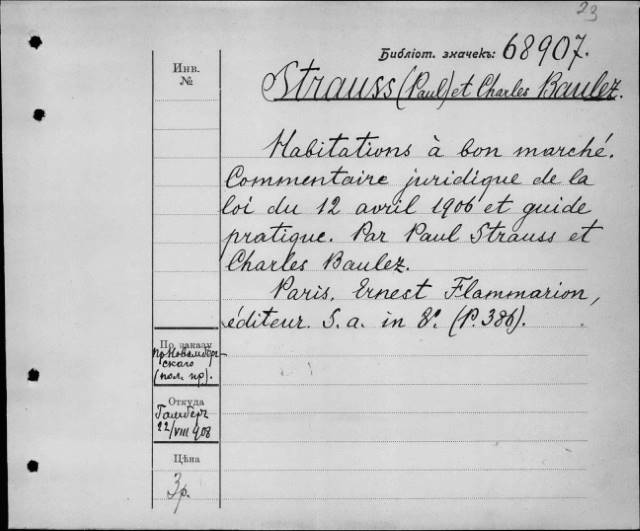 23
Библіот. значекъ: 68907.
Инв.
№
Strauss (Paul) et Charles Baulez.
Habitations à bon marché.
Commentaire juridique de la
loi du 12 avril 1906 et guide
pratique. Par Paul Strauss et
Charles Baulez.
Paris, Ernest Flammarion,
éditeur. S. a. in 8°. (P. 386).
По заказу
пр. Новомберг-
скаго
(пол. пр).
Откуда
Гамберъ
22/VIII 908
Цѣна
3р.